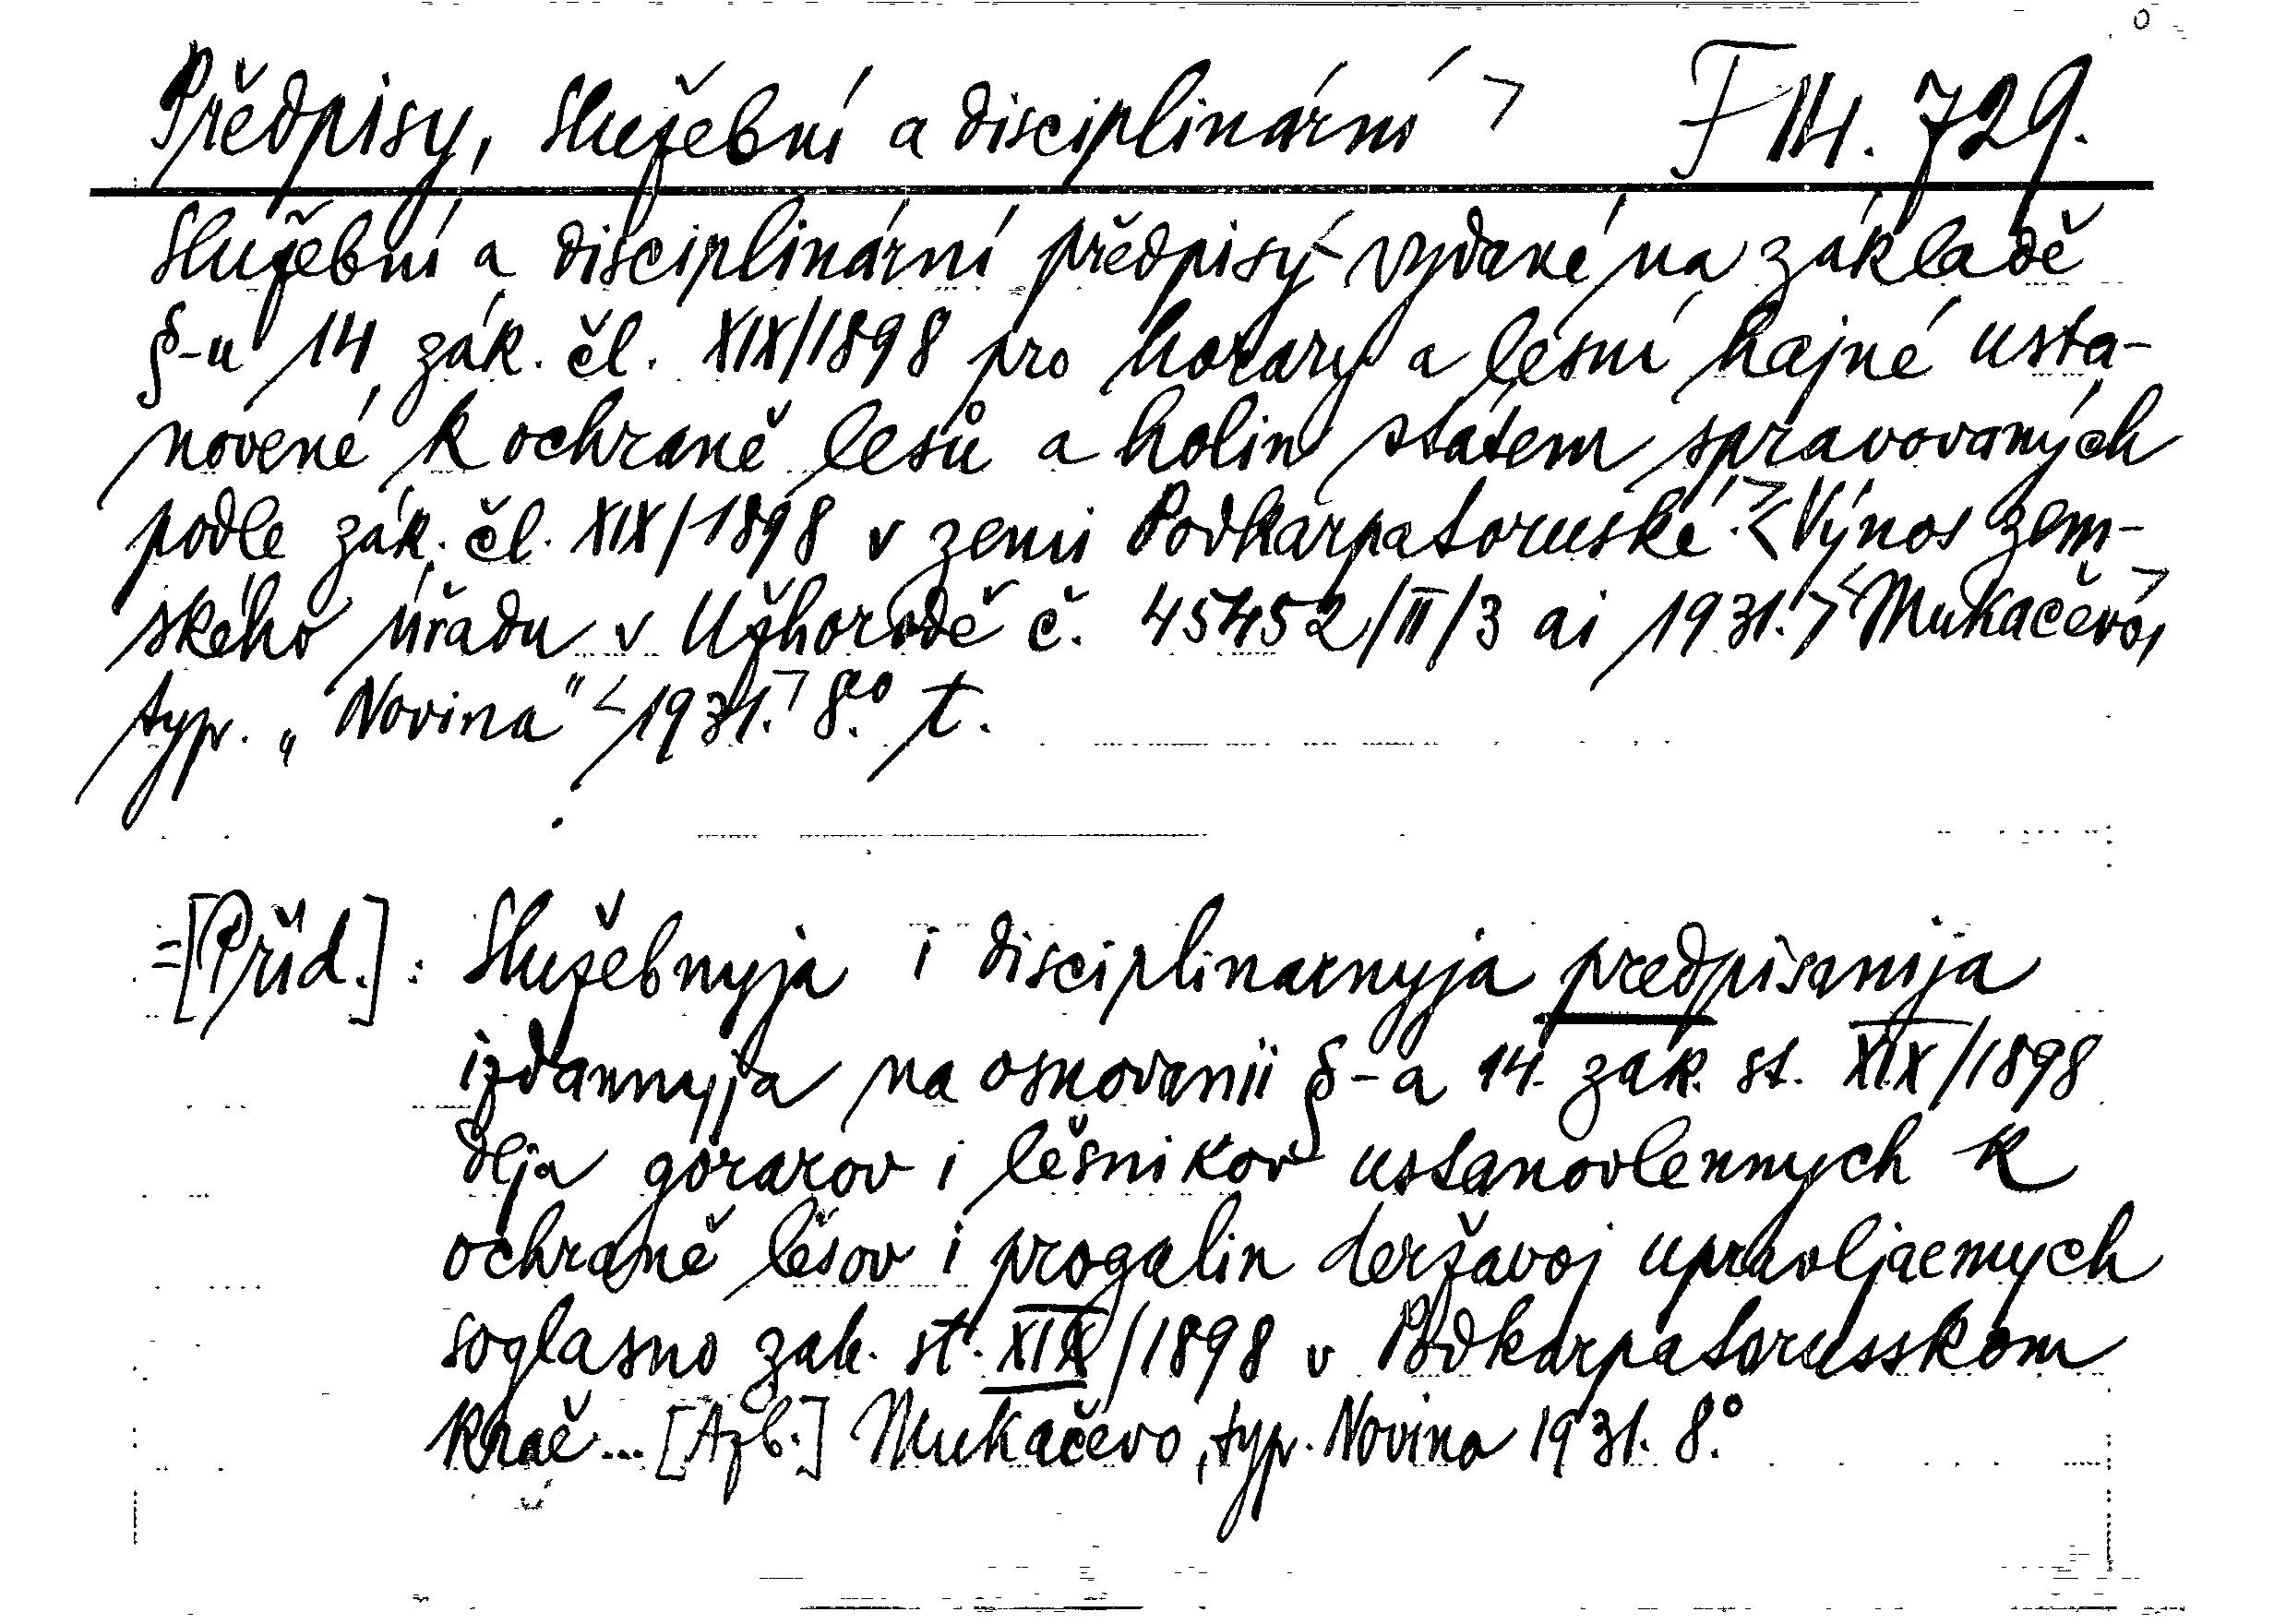 Předpisy, služební a disciplinární > F 114. 729.
Služební a disciplinární předpisy vydané na základě
§-u 14 zák. čl. XIX/1898 pro horary a lesní hajné usta-
novené k ochraně lesů a holin státem spravovaných
podle zák. čl. XIX/1898 v zemi Podkarpatoruské.> <Výnos zem-
ského úřadu v Užhorodě č. 45452/II/3 ai 1931.> <Mukačevo>,
typ. „Novina“ <1931.> 8.eo t.
=[Příd.]: Služebnyja i disciplinarnyja predpisanija
izdannyja na osnovanii §-a 14. zak. st. XIX/1898
dlja gorarov i lěsnikov ustanovlennych k
ochraně lěsov i progalin deržavoj upravljaemych
soglasno zak. st. XIX/1898 v Podkarpatorusskom
kraě... [Azb.] Mukačevo, typ. Novina 1931. 8.°